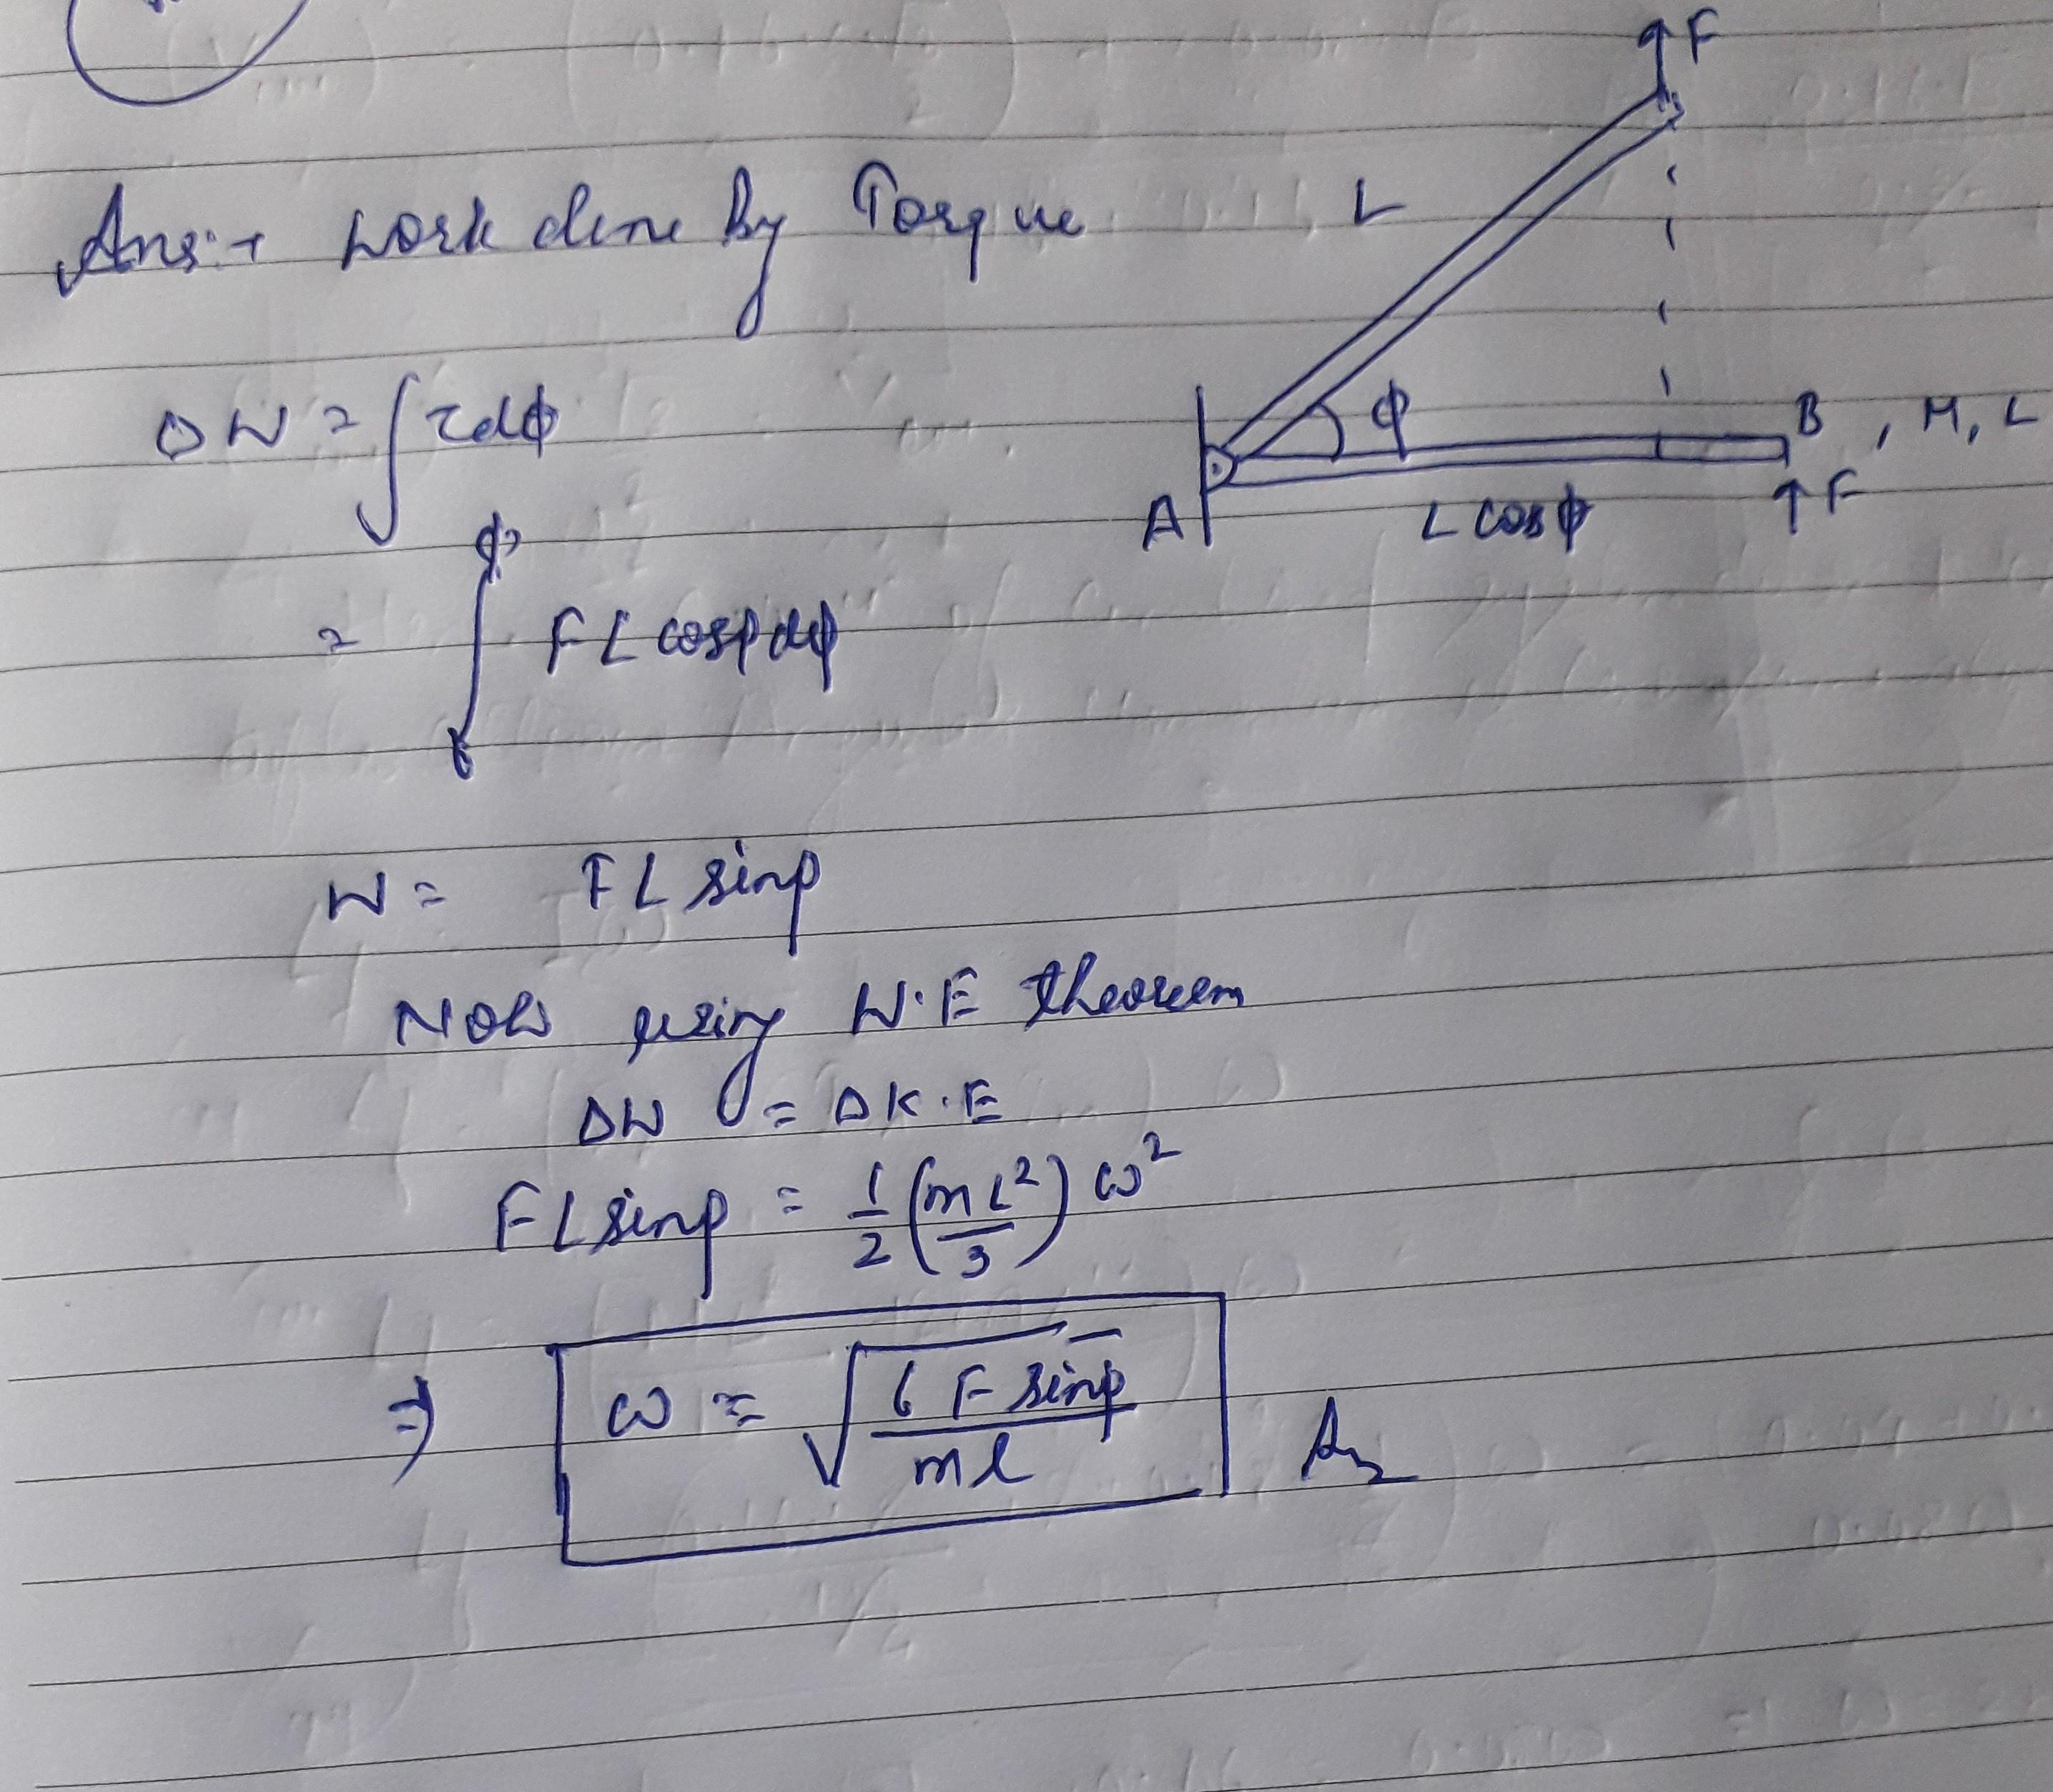 Ans:→ Work done by Torque
ΔW = ∫τdϕ
= ∫₀^ϕ FL cosϕ dϕ
W = FL sinϕ
Now using W.E theorem
ΔW = ΔK.E
FL sinϕ = 1/2 (mL²/3) ω²
⇒ ω = √(6 F sinϕ / ml) Ans
F
L
ϕ
B, M, L
A
L cosϕ
↑F